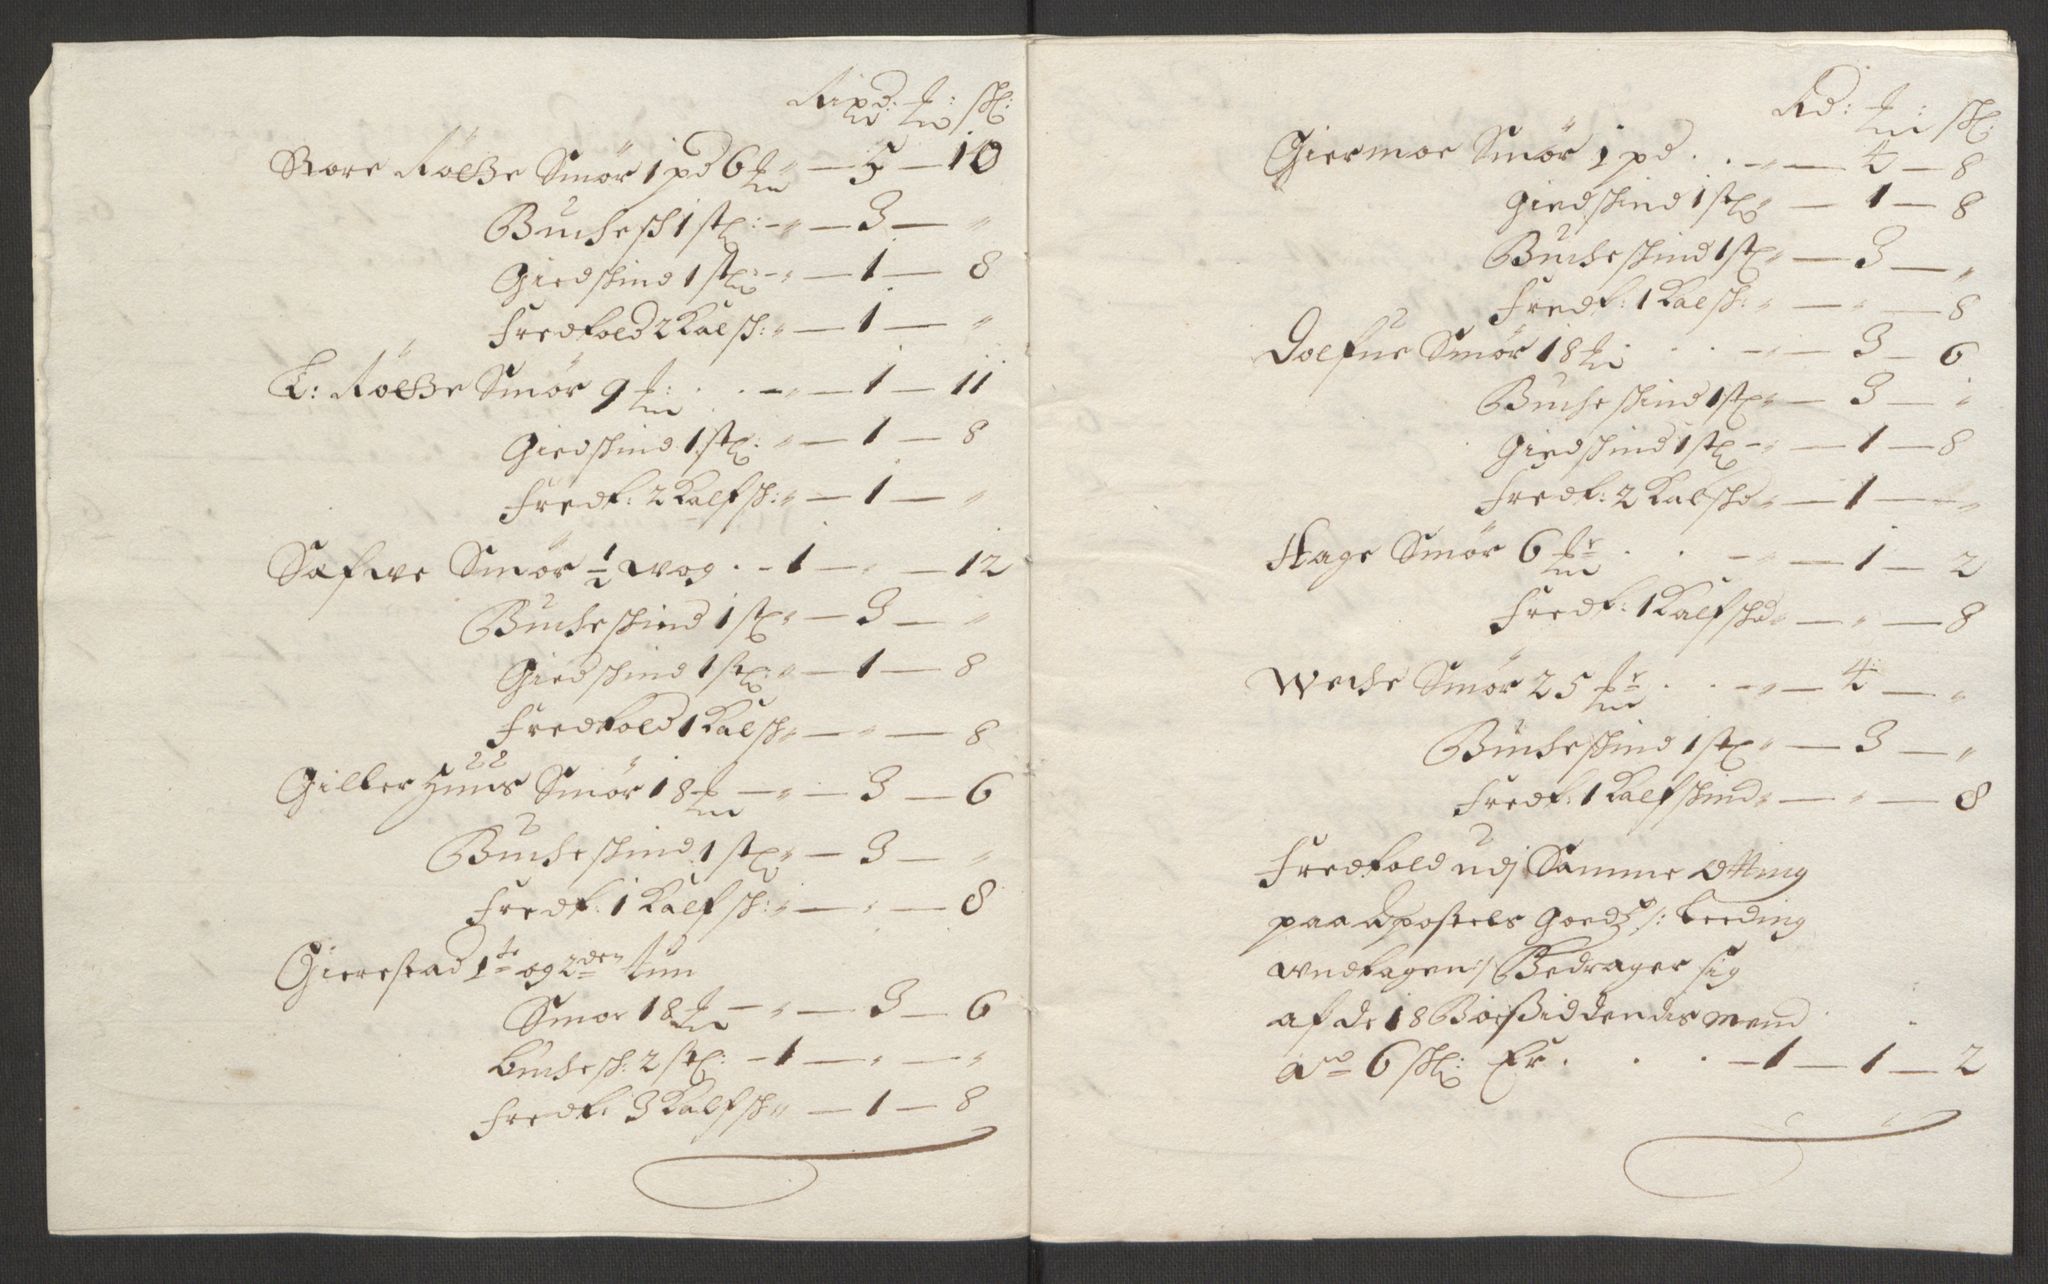 Ripd: t: sk:
Store Rölsße Smör 1 pd 6 t " — 5 — 10
Buchesk 1 st: " — 3 — "
Giedskind 1 st: " — 1 — 8
Fredtold 2 Kalsk: " — 1 — "
L: Rölsße Smör 9 t: . . — " — 1 — 11
Giedskind 1 st: " — 1 — 8
Fredt: 2 Kalfsk: " — 1 — "
Sæfwe Smör ½ wog . — 1 — " — 12
Bucheskind 1 st " — 3 — "
Giedskind 1 st: " — 1 — 8
Fredtold 1 Kalsk " — " — 8
Gilber Huus Smör 18 t — " — 3 — 6
Bucheskind 1 st " — 3 — "
Fredt: 1 Kalfsk: " — " — 8
Gierestad 1te og 2den tun
Smör 18 t — " — 3 — 6
buchesk: 2 st: — 1 — " — "
Fredt: 3 Kalfsk " — 1 — 8
Rd: t: sk:
Giermoe Smör 1 pd . . " — 4 — 8
Giedskind 1 st " — 1 — 8
Bucheskind 1 st " — 3 — "
Fredt: 1 Kalsk: " — " — 8
Dolfue Smör 18 t . . — " — 3 — 6
Bucheskind 1 st " — 3 — "
Giedskind 1 st — " — 1 — 8
Fredt: 2 Kalskd " — 1 — "
Hage Smör 6 tr . . — " — 1 — 2
Fredt: 1 Kalfskd " — " — 8
Weche Smör 25 tr . . — " — 4 — "
Bucheskind 1 st " — 3 — "
Fredt: 1 Kalfskind " — " — 8
Fredtold udj Samme Otting
paa Apostels Goedz /: Leeding
undtagen :/ Bedrager sig
af de 18 Boesiddendis mend
a 6 sk: Er . . . — 1 — 1 — 2